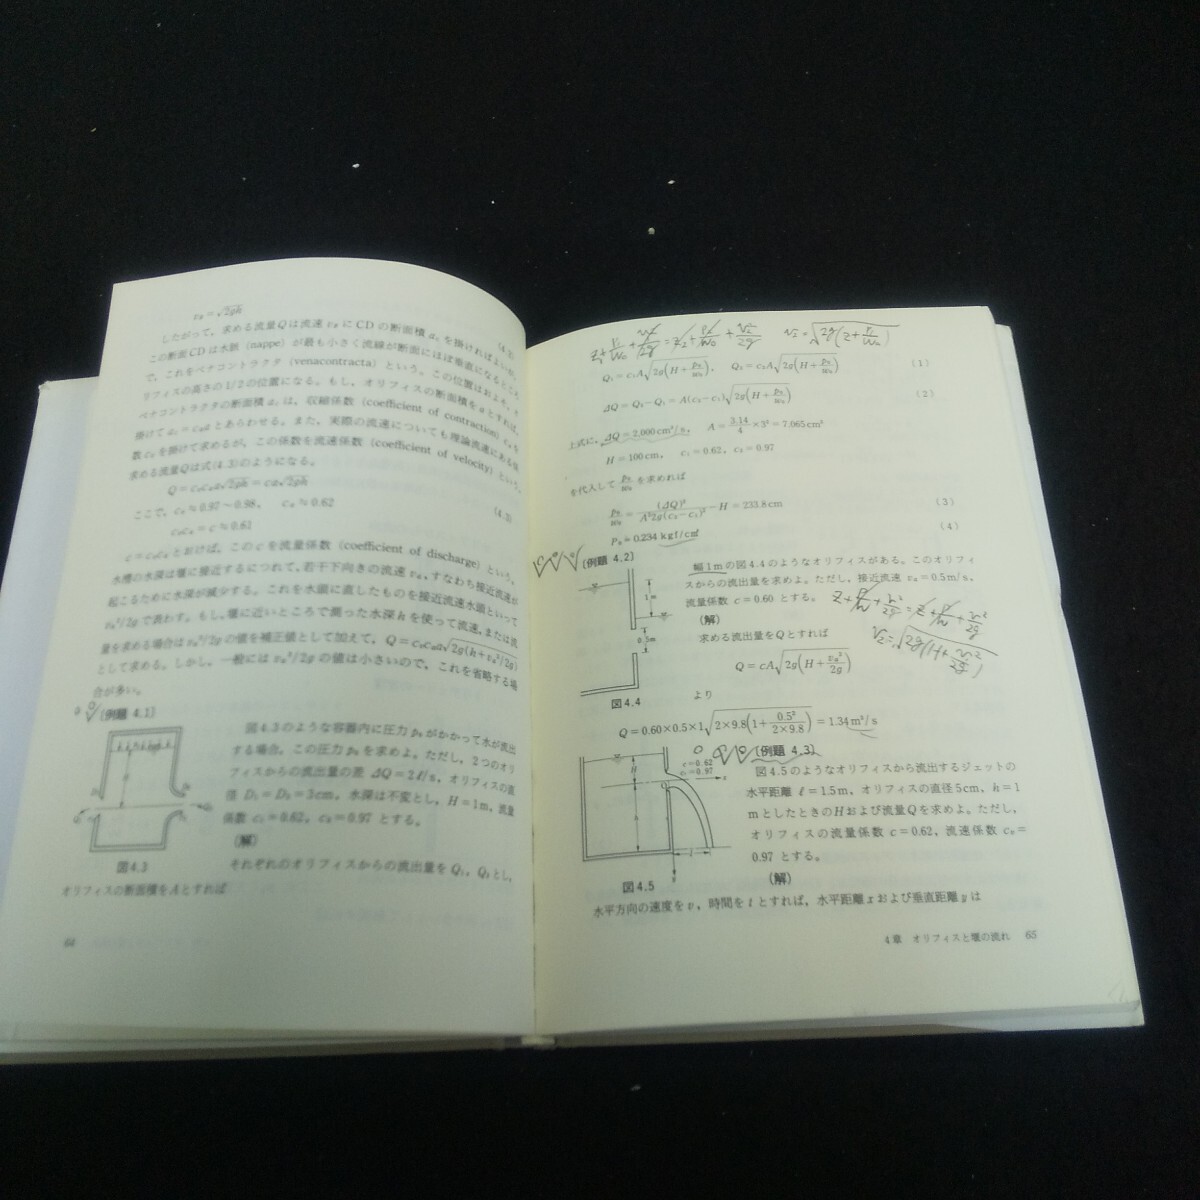 v₂=√2gh
(4.2)
したがって，求める流量Qは流速 v₂ にCDの断面積 a₂ を掛ければよいが，
この断面CDは水脈（nappe）が最も小さく流線が断面にほぼ垂直になるところ
で，これをベナコントラクタ（venacontracta）という。この位置はおよそ，オ
リフィスの高さの1/2の位置になる。もし，オリフィスの断面積をaとすれば，
ベナコントラクタの断面積 a₂ は，収縮係数（coefficient of contraction）cₐを
掛けて a₂=cₐa とあらわせる。また，実際の流速についても理論流速にある係
数 cᵥ を掛けて求めるが，この係数を流速係数（coefficient of velocity）という。
求める流量Qは式(4.3)のようになる。
Q=cᵥcₐa√2gh=ca√2gh
(4.3)
ここで，cᵥ≒0.97～0.98， cₐ≒0.62
cᵥcₐ=c≒0.61
c=cᵥcₐとおけば，このcを流量係数（coefficient of discharge）という。
水槽の水深は堰に接近するにつれて，若干下向きの流速 vₐ，すなわち接近流速が
起こるために水深が減少する。これを水頭に直したものを接近流速水頭といって
vₐ²/2g で表わす。もし，堰に近いところで測った水深hを使って流速，または流
量を求める場合は vₐ²/2g の値を補正値として加えて，Q=cᵥcₐa√2g(h+vₐ²/2g)
として求める。しかし，一般には vₐ²/2g の値は小さいので，これを省略する場
合が多い。
〔例題 4.1〕
図4.3のような容器内に圧力 p₀ がかかって水が流出
する場合，この圧力 p₀ を求めよ。ただし，2つのオリ
フィスからの流出量の差 ΔQ=2ℓ/s，オリフィスの直
径 D₁=D₂=3cm，水深は不変とし，H=1m，流量
係数 c₁=0.62，c₂=0.97 とする。
図4.3
（解）
それぞれのオリフィスからの流出量を Q₁，Q₂とし，
オリフィスの断面積をAとすれば
64
Q₁=c₁A√2g(H+p₀/w₀)， Q₂=c₂A√2g(H+p₀/w₀) (1)
ΔQ=Q₂-Q₁=A(c₂-c₁)√2g(H+p₀/w₀) (2)
上式に，ΔQ=2,000cm³/s， A=3.14/4×3²=7.065cm²
H=100cm， c₁=0.62，c₂=0.97
を代入して p₀/w₀ を求めれば
p₀/w₀=(ΔQ)²/A²2g(c₂-c₁)²-H=233.8cm (3)
p₀=0.234 kgf/cm² (4)
〔例題 4.2〕
幅1mの図4.4のようなオリフィスがある。このオリフィ
スからの流出量を求めよ。ただし，接近流速 vₐ=0.5m/s，
流量係数 c=0.60 とする。
（解）
求める流出量をQとすれば
Q=cA√2g(H+vₐ²/2g)
1m
0.5m
図4.4
より
Q=0.60×0.5×1√2×9.8(1+0.5²/2×9.8)=1.34m³/s
〔例題 4.3〕
図4.5のようなオリフィスから流出するジェットの
水平距離 ℓ=1.5m，オリフィスの直径5cm，h=1
mとしたときのHおよび流量Qを求めよ。ただし，
オリフィスの流量係数 c=0.62，流速係数 cᵥ=
0.97 とする。
c=0.62
cᵥ=0.97
H
図4.5
（解）
水平方向の速度をv，時間をtとすれば，水平距離xおよび垂直距離yは
4章 オリフィスと堰の流れ 65